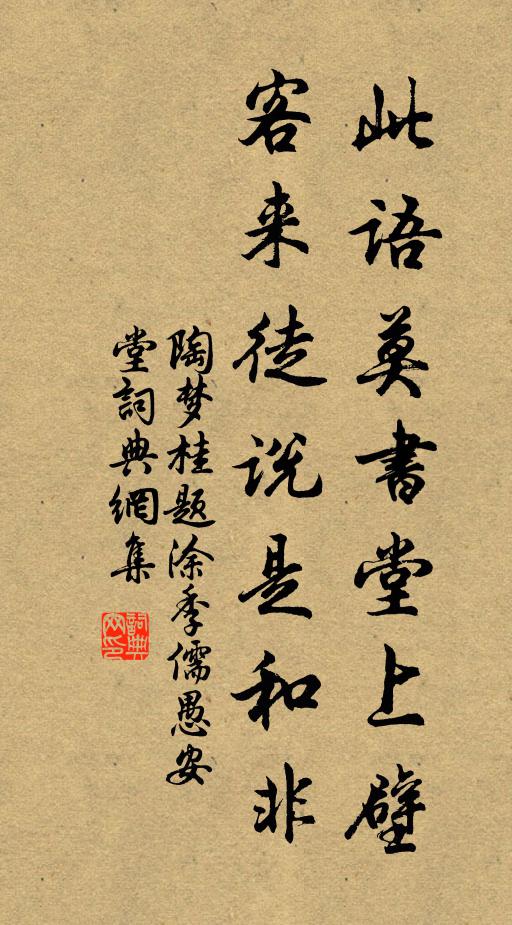 此语莫書堂上壁
客来徒说是和非
陶梦桂题涂季儒愚安
堂詞典網集
詞典網印